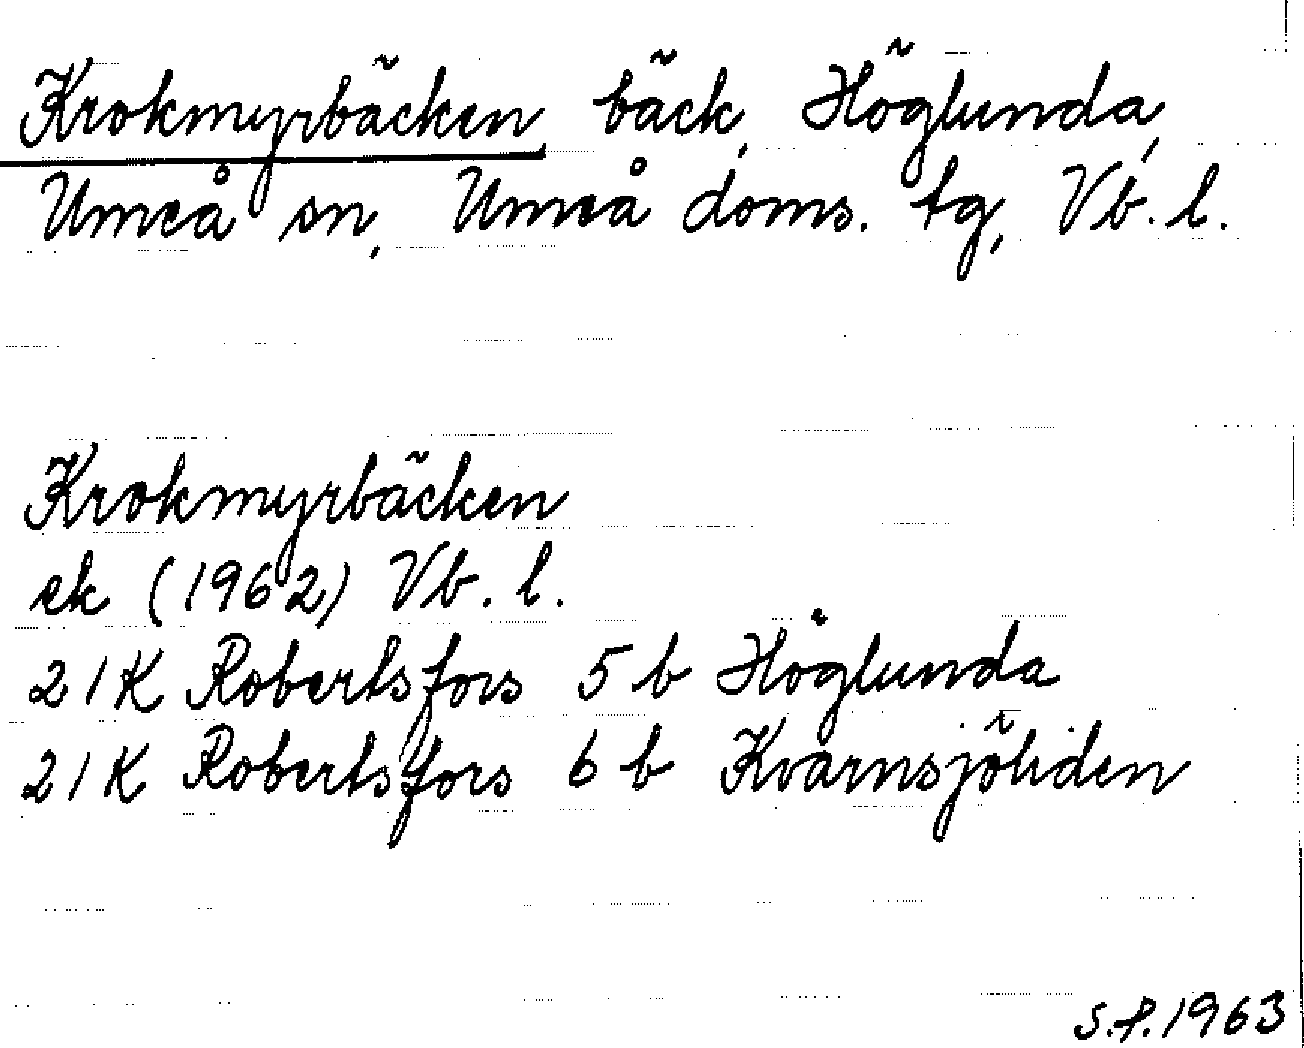 Krokmyrbäcken, bäck, Höglunda,
Umeå sn, Umeå doms. tg, Vb. l.
Krokmyrbäcken
ek (1962) Vb. l.
21K Robertsfors 5 b Höglunda
21K Robertsfors 6 b Kvarnsjöliden
S.f. 1963